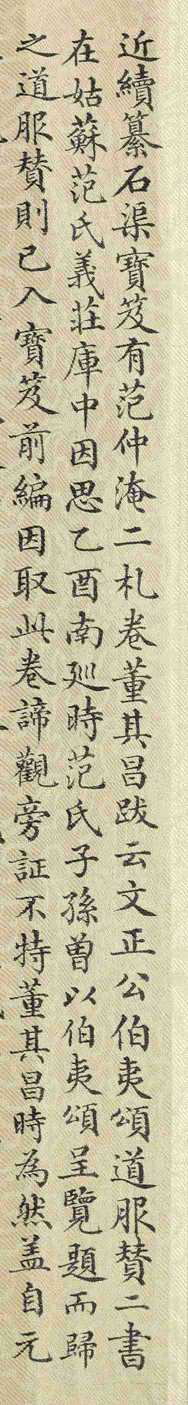 近續纂石渠寶笈有范仲淹二札卷董其昌跋云文正公伯夷頌道服賛二書
在姑蘇范氏義莊庫中因思乙酉南廵時范氏子孫曾以伯夷頌呈覽題而歸
之道服賛則已入寶笈前編因取此卷諦觀旁証不特董其昌時為然盖自元